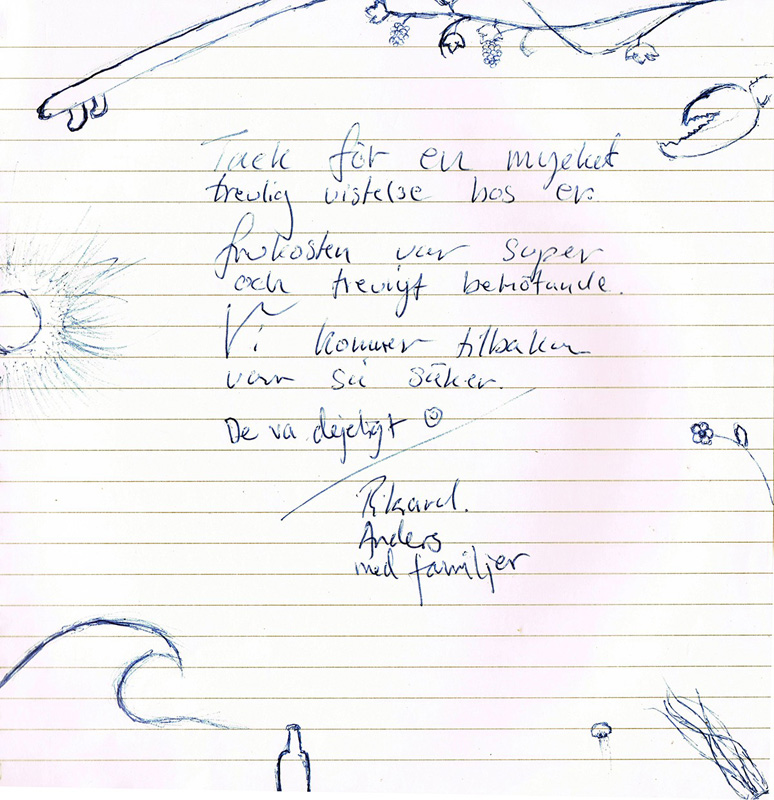 Tack för en mycket
trevlig vistelse hos er.
frukosten var super
och trevligt bemötande.
Vi kommer tilbaka
var så säker.
De va dejeligt ☺
Rikard.
Anders
med familjer